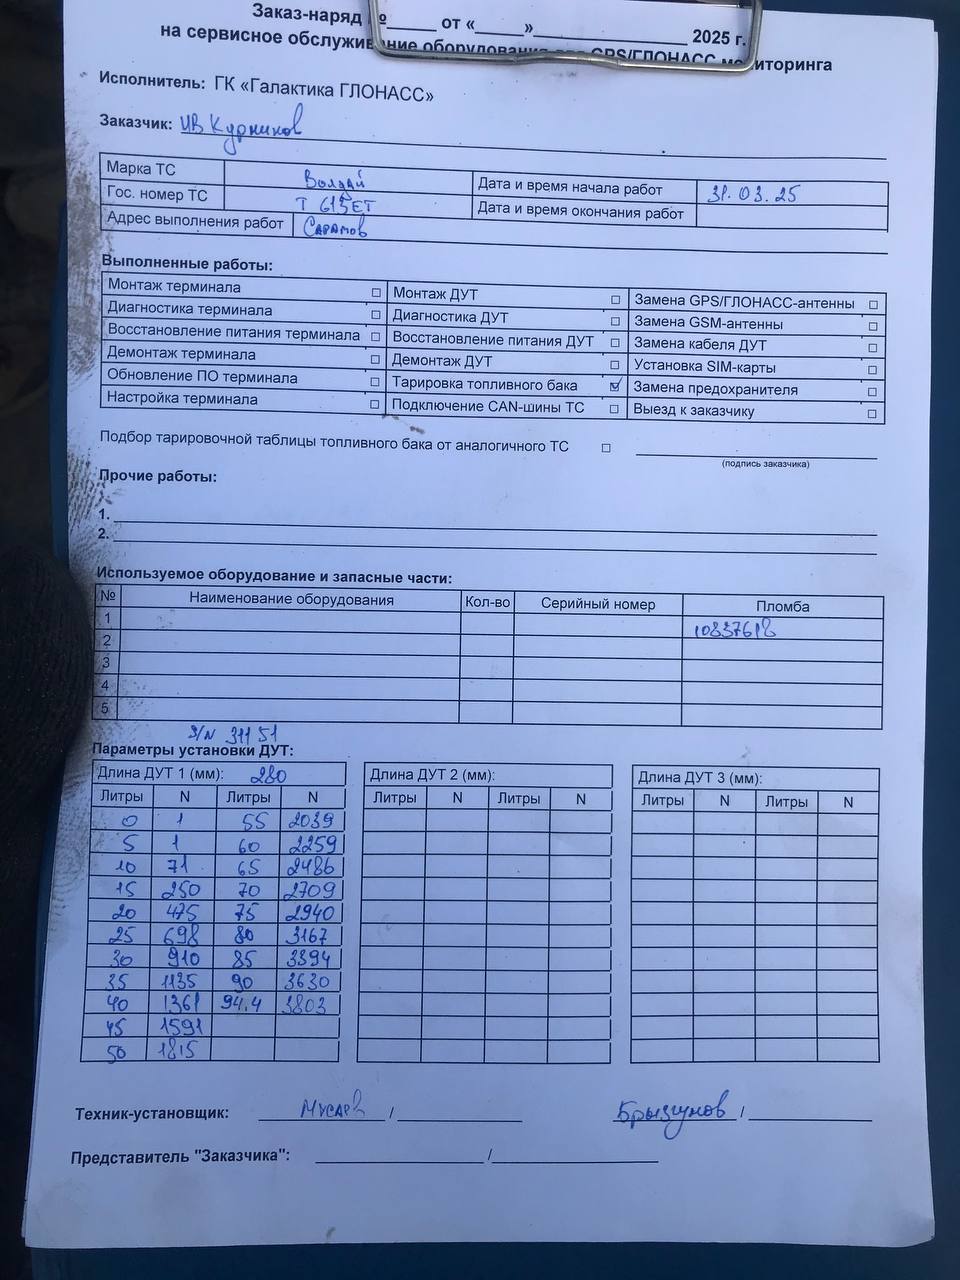 Заказ-наряд №_____ от «_____»________________ 2025 г.
на сервисное обслуживание оборудования для GPS/ГЛОНАСС мониторинга
Исполнитель: ГК «Галактика ГЛОНАСС»
Заказчик: ИВ Курников
Марка ТС Валдай Дата и время начала работ 31.03.25
Гос. номер ТС Т 615 ЕТ Дата и время окончания работ
Адрес выполнения работ Саратов
Выполненные работы:
Монтаж терминала □ Монтаж ДУТ □ Замена GPS/ГЛОНАСС-антенны □
Диагностика терминала □ Диагностика ДУТ □ Замена GSM-антенны □
Восстановление питания терминала □ Восстановление питания ДУТ □ Замена кабеля ДУТ □
Демонтаж терминала □ Демонтаж ДУТ □ Установка SIM-карты □
Обновление ПО терминала □ Тарировка топливного бака ☑ Замена предохранителя □
Настройка терминала □ Подключение CAN-шины ТС □ Выезд к заказчику □
Подбор тарировочной таблицы топливного бака от аналогичного ТС □
(подпись заказчика)
Прочие работы:
1.
2.
Используемое оборудование и запасные части:
№ Наименование оборудования Кол-во Серийный номер Пломба
1 10837618
2
3
4
5
S/N 31151
Параметры установки ДУТ:
Длина ДУТ 1 (мм): 280 Длина ДУТ 2 (мм): Длина ДУТ 3 (мм):
Литры N Литры N Литры N Литры N Литры N Литры N
0 1 55 2039
5 1 60 2259
10 71 65 2486
15 250 70 2709
20 475 75 2940
25 698 80 3167
30 910 85 3394
35 1135 90 3630
40 1361 94.4 3803
45 1591
50 1815
Техник-установщик: Мусаев / Брызгунов /
Представитель "Заказчика": /